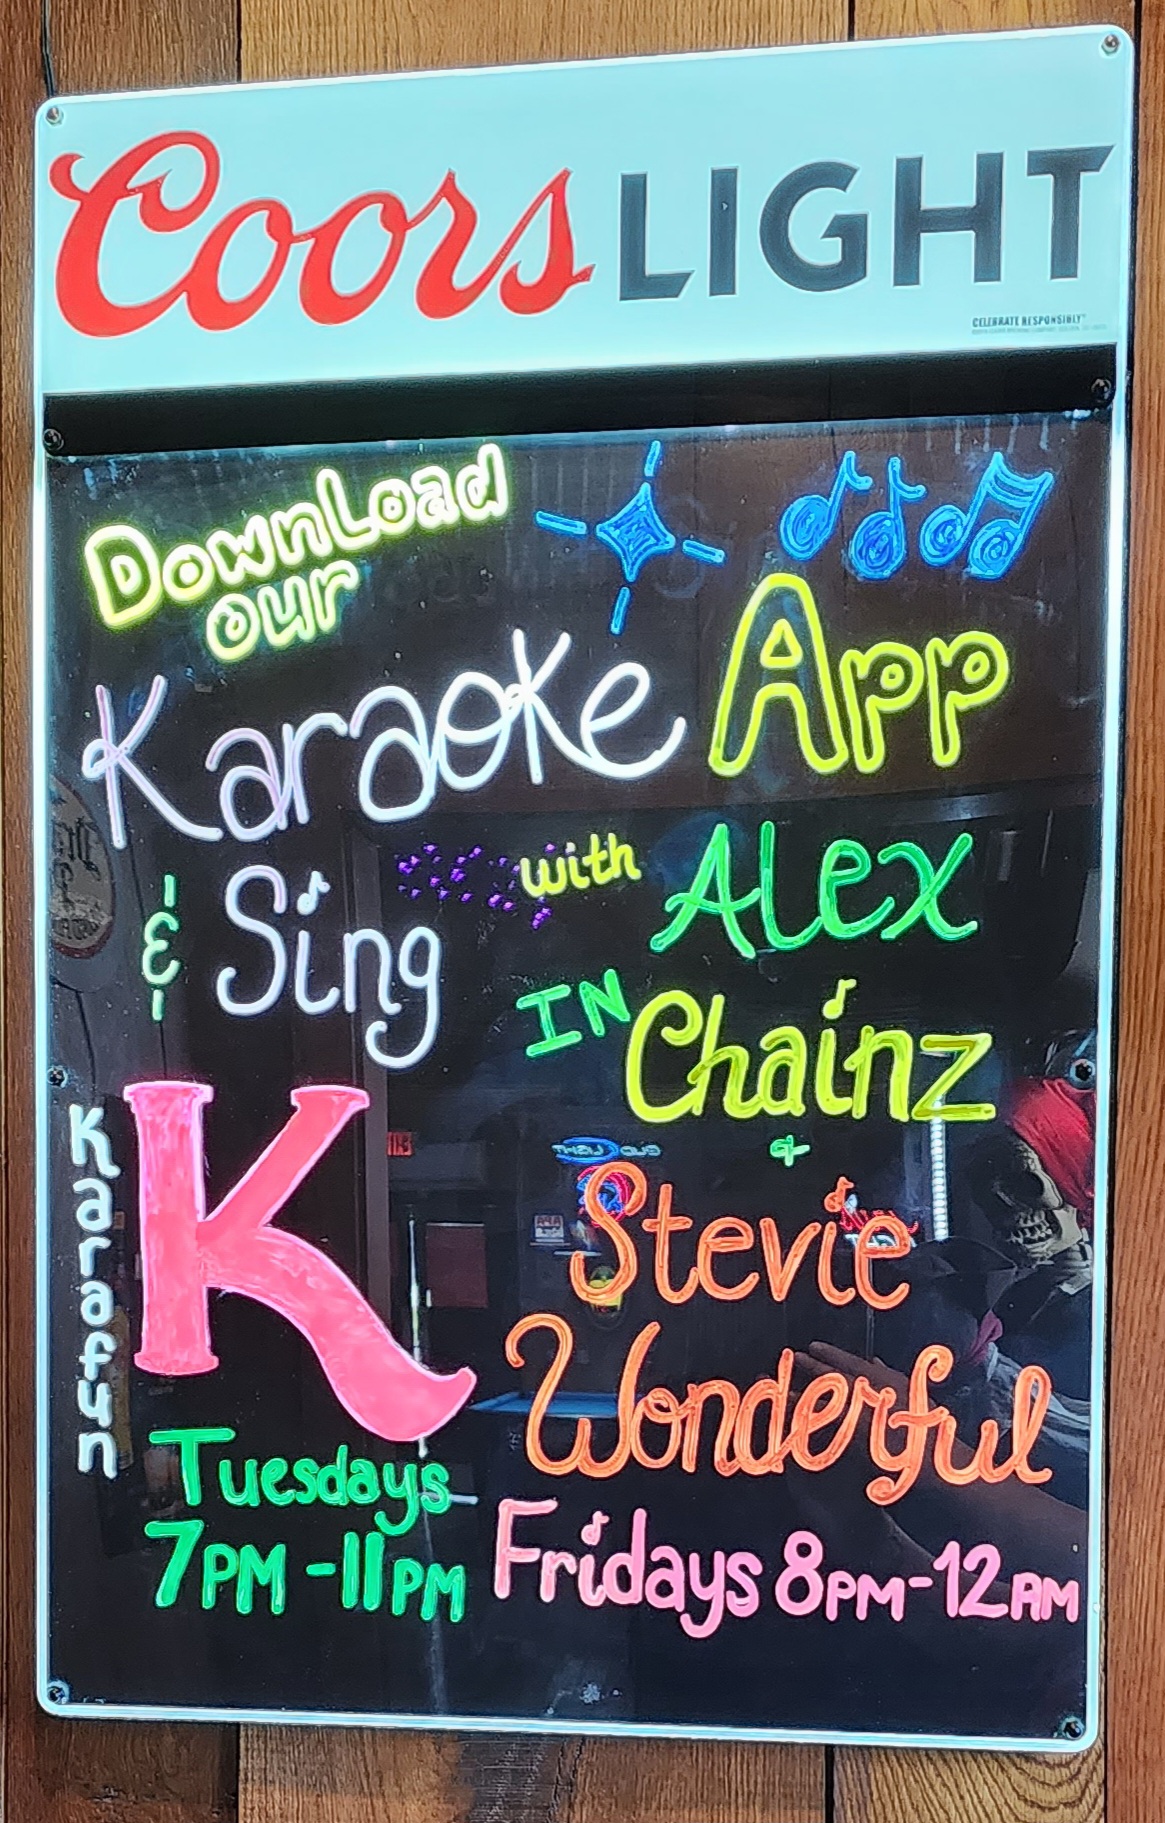 Coors LIGHT
CELEBRATE RESPONSIBLY
Download
our
Karaoke App
& Sing with Alex
IN Chainz
+
Stevie
Wonderful
Karafun
K
Tuesdays
7PM-11PM
Fridays 8PM-12AM